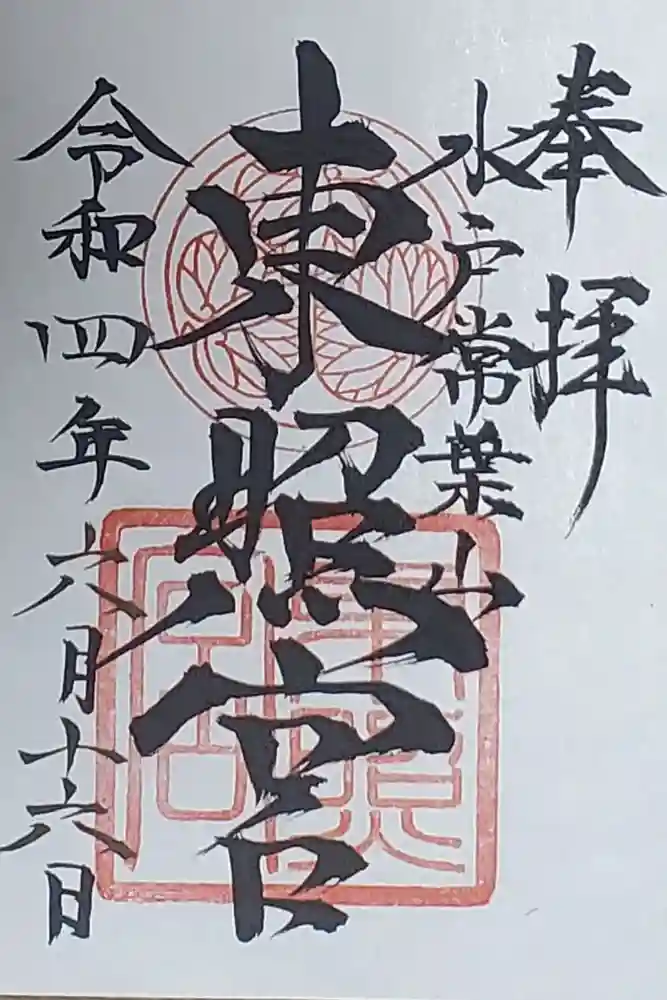 奉拝
水戸常葉山
東照宮
東照宮
令和四年六月十六日